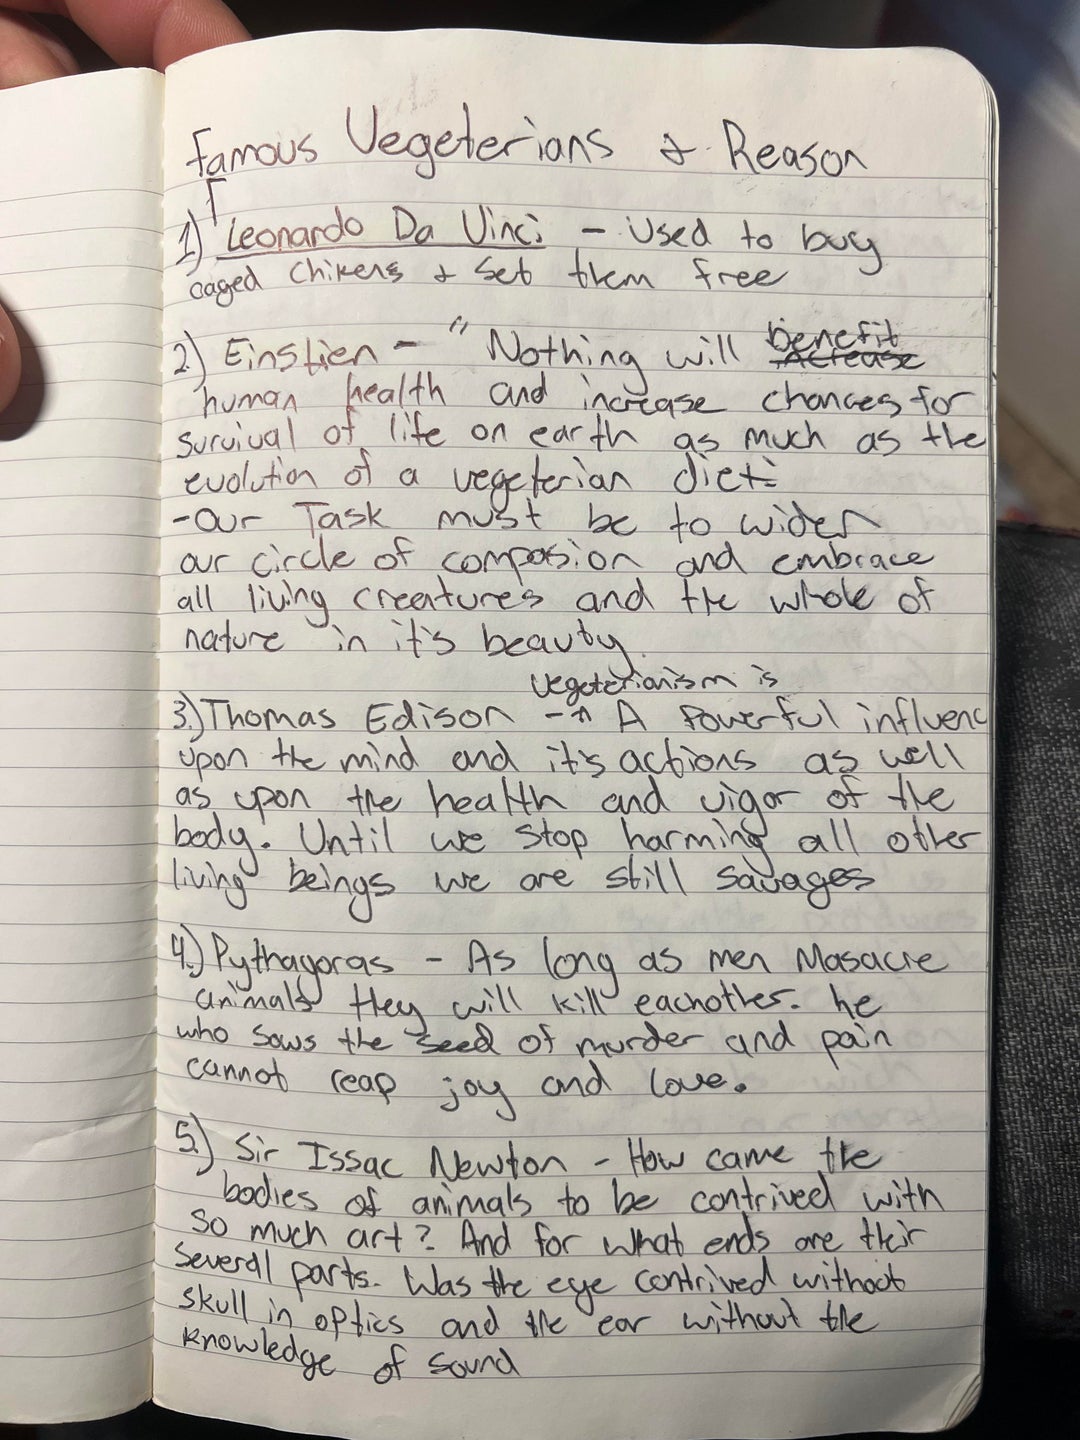 Famous Vegeterians & Reason
1) Leonardo Da Vinci - Used to buy
caged Chikens & Set them free
2) Einstien - "Nothing will benefit
human health and increase chances for
survival of life on earth as much as the
evolution of a vegeterian diet.
- Our Task must be to widen
our circle of compasion and embrace
all living creatures and the whole of
nature in it's beauty.
vegeterianism is
3.) Thomas Edison - A Powerful influenc
upon the mind and it's actions as well
as upon the health and vigor of the
body. Until we stop harming all other
living beings we are still savages
4.) Pythagoras - As long as men Masacre
animals they will kill eachother. he
who sows the seed of murder and pain
cannot reap joy and love.
5.) Sir Issac Newton - How came the
bodies of animals to be contrived with
so much art? And for what ends are their
several parts. Was the eye contrived without
skull in optics and the ear without the
knowledge of sound